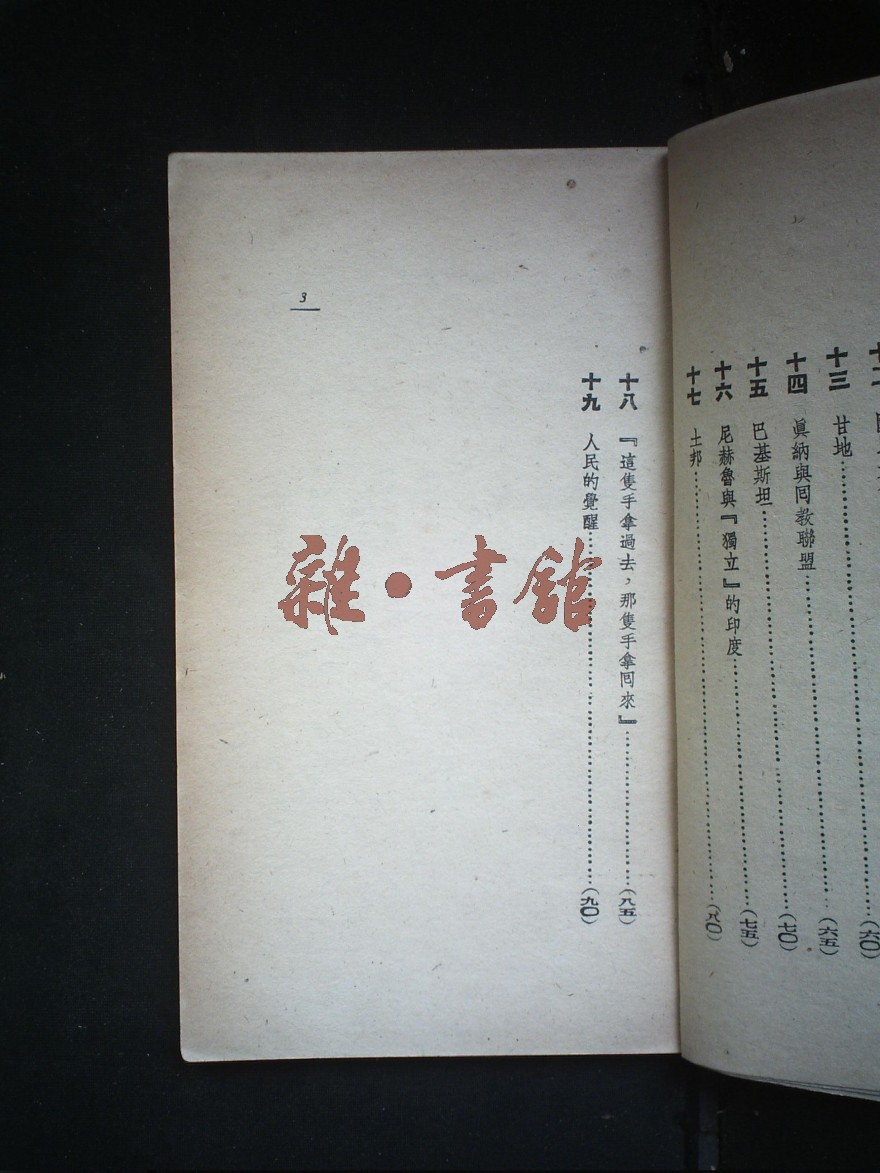 十二
十三 甘地……(六〇)
十四 眞納與囘敎聯盟……(六五)
十五 巴基斯坦……(七〇)
十六 尼赫魯與『獨立』的印度……(七五)
十七 土邦……(八〇)
十八 『這隻手拿過去，那隻手拿囘來』……(八五)
十九 人民的覺醒……(九〇)
3
雜•書館